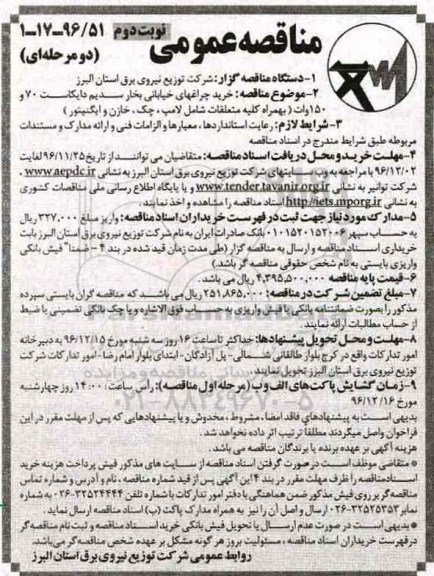 مناقصه عمومی نوبت دوم ۱-۱۷-۹۶/۵۱
(دو مرحله‌ای)
۱-دستگاه مناقصه گزار: شرکت توزیع نیروی برق استان البرز
۲-موضوع مناقصه: خرید چراغهای خیابانی بخار سدیم دایکاست ۷۰ و
۱۵۰ وات (بهمراه کلیه متعلقات شامل لامپ، چک، خازن و ایگنیتور)
۳-شرایط لازم: رعایت استانداردها، معیارها و الزامات فنی و ارائه مدارک و مستندات
مربوطه طبق شرایط مندرج در اسناد مناقصه
۴-مهلت خرید و محل دریافت اسناد مناقصه: متقاضیان می توانند از تاریخ ۹۶/۱۱/۲۵ لغایت
۹۶/۱۲/۰۲ با مراجعه به وب سایتهای شرکت توزیع نیروی برق استان البرز به نشانی www.aepdc.ir
شرکت توانیر به نشانی www.tender.tavanir.org.ir و یا پایگاه اطلاع رسانی ملی مناقصات کشوری
به نشانی http://iets.mporg.ir اسناد مناقصه را مشاهده و اخذ نمایند.
۵-مدارک مورد نیاز جهت ثبت در فهرست خریداران اسناد مناقصه: واریز مبلغ ۳۲۷,۰۰۰ ریال
به حساب سپهر ۰۱۰۱۵۲۰۱۵۲۰۰۶ بانک صادرات ایران به نام شرکت توزیع نیروی برق استان البرز بابت
خریداری اسناد مناقصه و ارسال به مناقصه گزار (طی مدت زمان قید شده در بند ۴ - ضمنا" فیش بانکی
واریزی بایستی به نام شخص حقوقی مناقصه گر باشد.)
۶-قیمت پایه مناقصه ۴,۳۹۵,۵۰۰,۰۰۰ ریال می باشد.
۷-مبلغ تضمین شرکت در مناقصه: ۲۵۱,۸۶۵,۰۰۰ ریال می باشد که مناقصه گران بایستی سپرده
مذکور را بصورت ضمانتنامه بانکی یا فیش واریزی به حساب فوق الاشاره و یا چک بانکی تضمینی یا ضبط
از حساب مطالبات ارائه نمایند.
۸-مهلت و محل تحویل پیشنهادها: حداکثر تا ساعت ۱۶ روز سه شنبه مورخ ۹۶/۱۲/۱۵ به دبیرخانه
امور تدارکات واقع در کرج بلوار طالقانی شمالی- پل آزادگان - ابتدای بلوار امام رضا - امور تدارکات شرکت
توزیع نیروی برق استان البرز تحویل نمایند.
۹-زمان گشایش پاکت های الف و ب (مرحله اول مناقصه): رأس ساعت: ۱۴:۰۰ روز چهارشنبه
مورخ ۹۶/۱۲/۱۶
بدیهی است به پیشنهادهای فاقد امضا، مشروط، مخدوش و یا پیشنهادهایی که پس از مهلت مقرر در این
فراخوان واصل میگردند مطلقا ترتیب اثر داده نخواهد شد.
هزینه آگهی بر عهده برنده یا برندگان مناقصه می باشد.
* متقاضی موظف است در صورت گرفتن اسناد مناقصه از سایت های مذکور فیش پرداخت هزینه خرید
اسناد مناقصه را ظرف مهلت مقرر در بند ۴ این آگهی پس از قید شماره مناقصه، نام و آدرس و شماره تماس
مناقصه گر بر روی فیش مذکور ضمن هماهنگی با دفتر امور تدارکات با شماره تلفن ۰۲۶-۳۲۵۲۴۴۴۴ به شماره
نمابر ۰۲۶-۳۲۵۲۵۳۵۲ ارسال و اصل آن را نیز به همراه مدارک پاکت (ب) اسناد مناقصه ارسال نماید.
* بدیهی است در صورت عدم ارسال یا تحویل فیش بانکی خرید اسناد مناقصه و ثبت نام مناقصه گر
در فهرست خریداران اسناد مناقصه، مسئولیت بروز هر گونه مشکل بر عهده شخص مناقصه گر می باشد.
روابط عمومی شرکت توزیع نیروی برق استان البرز
۰۲۱-۸۸۳۴۹۶۷۰-۵